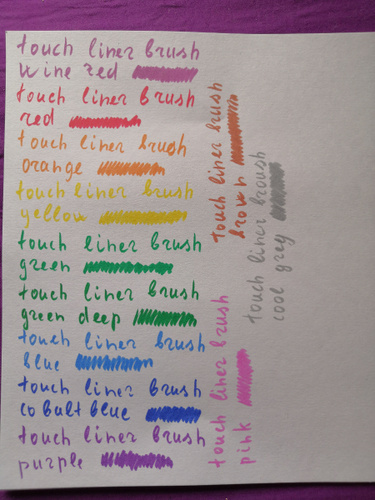 touch liner brush
wine red
touch liner brush
red
touch liner brush
orange
touch liner brush
yellow
touch liner brush
green
touch liner brush
green deep
touch liner brush
blue
touch liner brush
cobalt blue
touch liner brush
purple
touch liner brush
brown
touch liner broush
cool grey
touch liner brush
pink